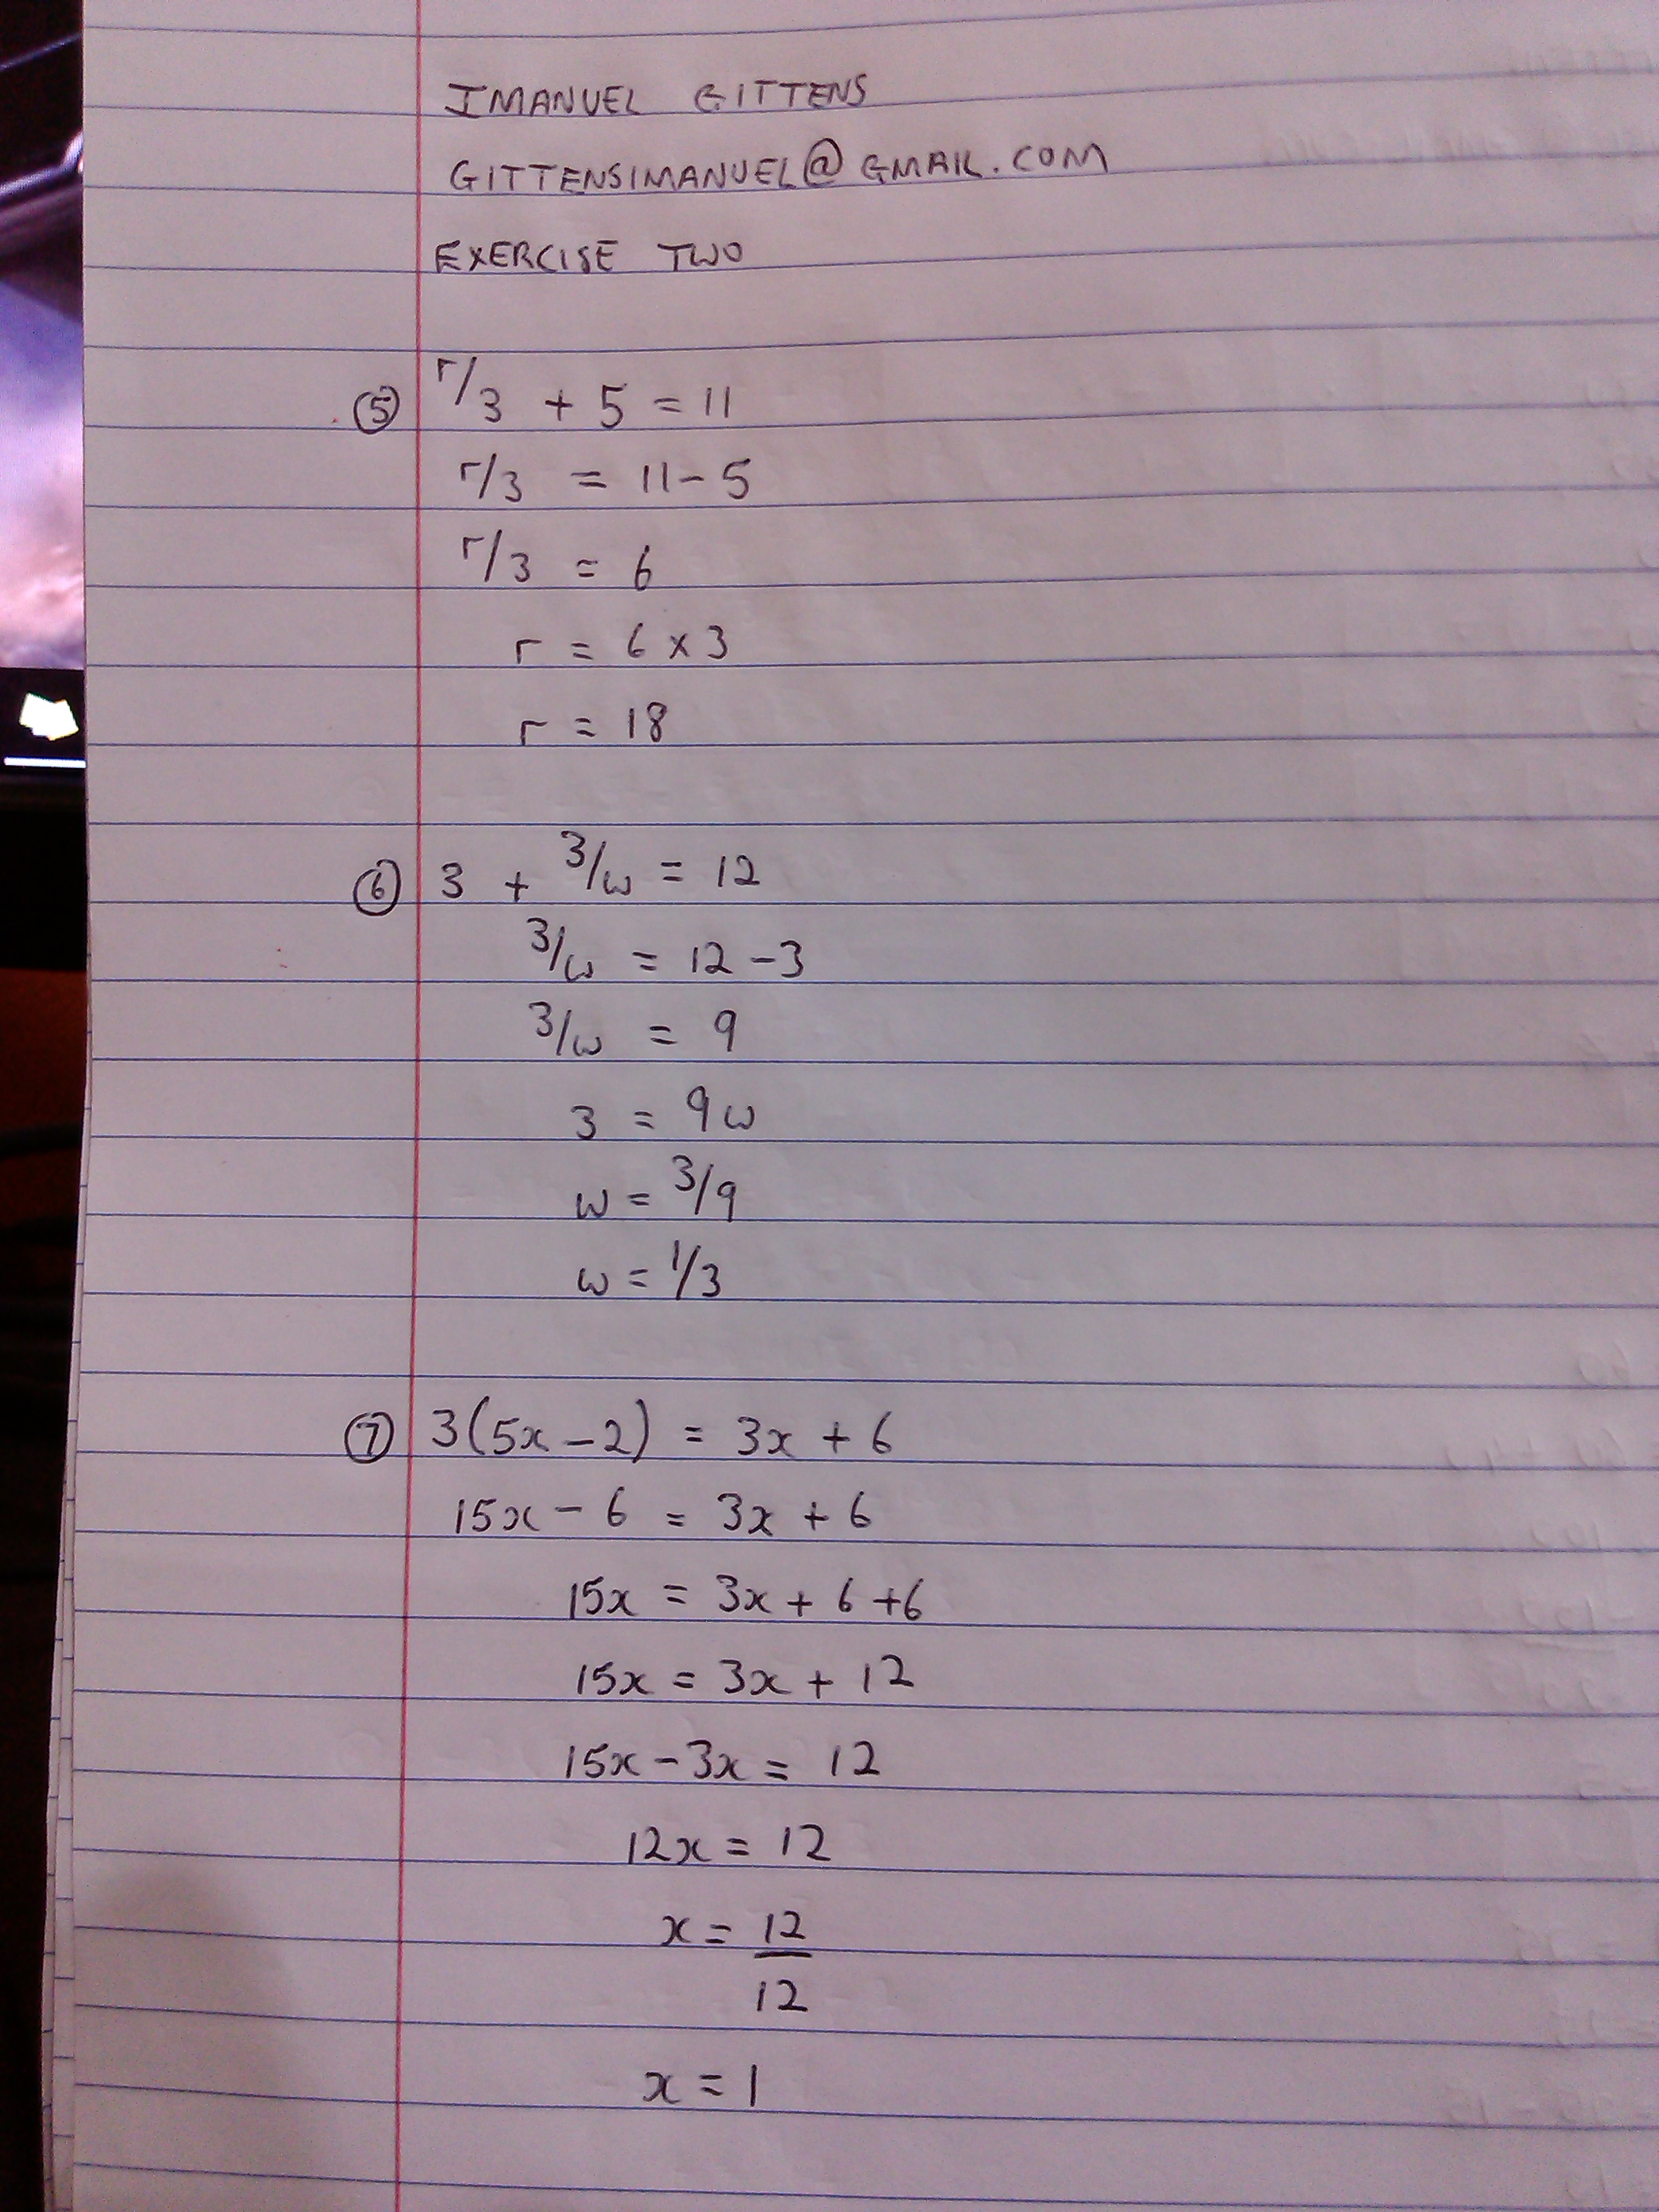 IMANUEL GITTENS
GITTENSIMANUEL@GMAIL.COM
EXERCISE TWO
⑤ r/3 + 5 = 11
r/3 = 11 - 5
r/3 = 6
r = 6 x 3
r = 18
⑥ 3 + 3/w = 12
3/w = 12 - 3
3/w = 9
3 = 9w
w = 3/9
w = 1/3
⑦ 3(5x - 2) = 3x + 6
15x - 6 = 3x + 6
15x = 3x + 6 + 6
15x = 3x + 12
15x - 3x = 12
12x = 12
x = 12
12
x = 1